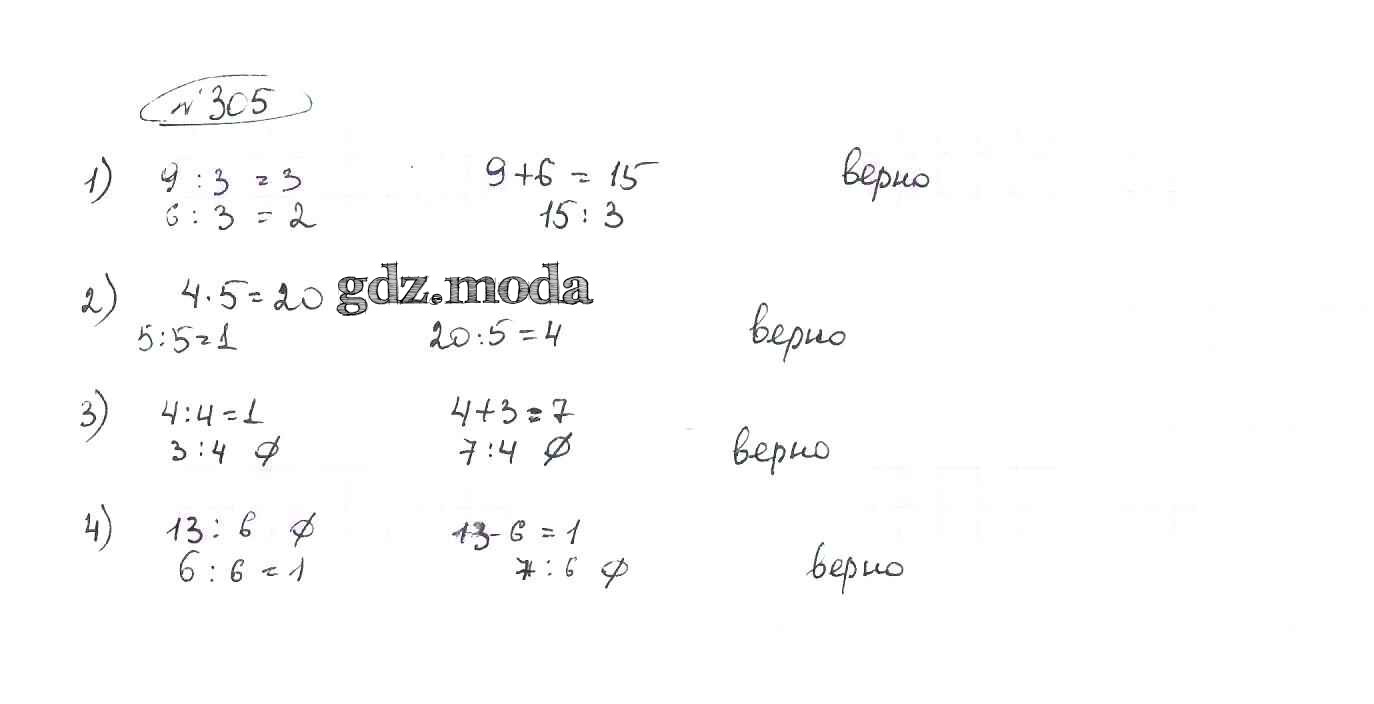 №305
1) 9 : 3 = 3 9 + 6 = 15 верно
6 : 3 = 2 15 : 3
2) 4 · 5 = 20 gdz.moda
5 : 5 = 1 20 : 5 = 4 верно
3) 4 : 4 = 1 4 + 3 = 7
3 : 4 ∅ 7 : 4 ∅ верно
4) 13 : 6 ∅ 13 - 6 = 1
6 : 6 = 1 7 : 6 ∅ верно